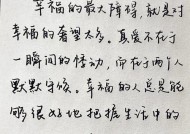 幸福的最大障碍,就是对
幸福的奢望太多。真爱不在于
一瞬间的悸动,而在于两个人
默默守候。幸福的人总是能
够很好地把握生活中的